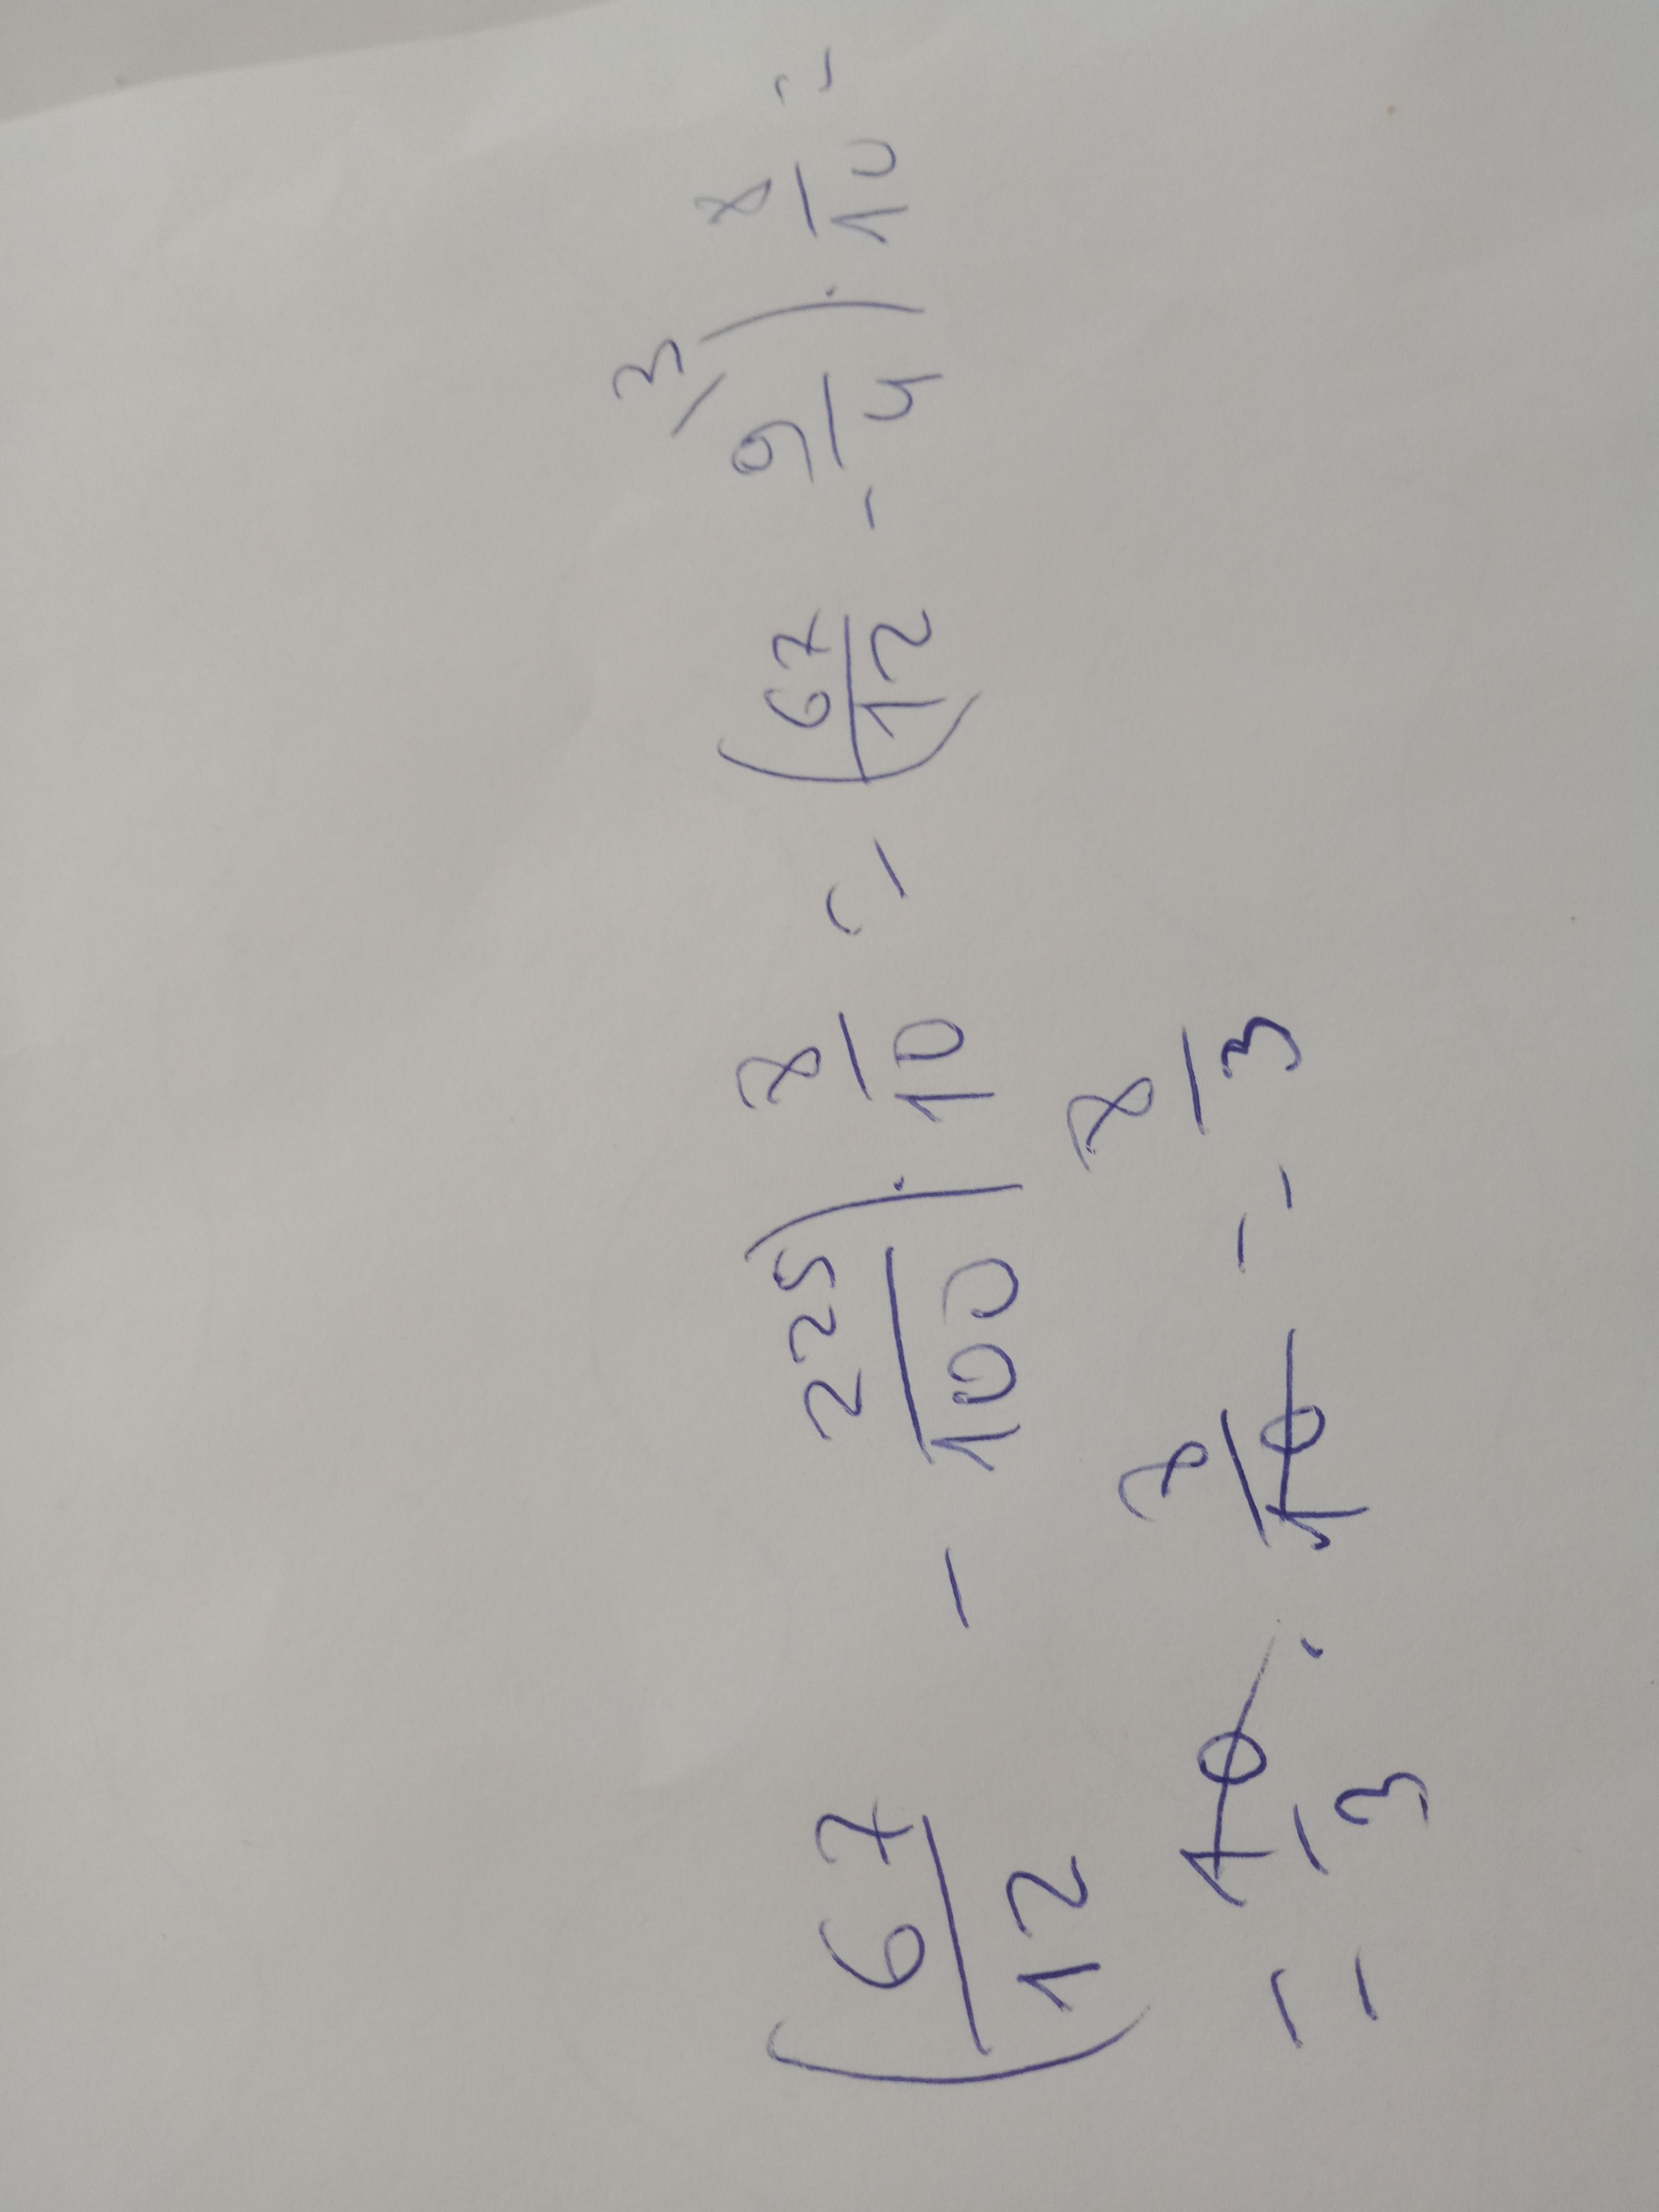 (67/12 - 225/100) · 8/10 = (67/12 - 9/4 /3) · 8/10 =
= 10/3 · 8/10 = 8/3